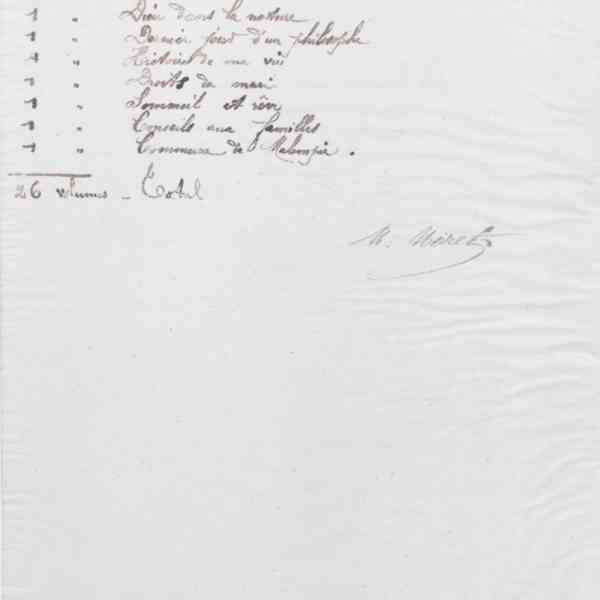 1 " Dieu dans la nature
1 " Dernier jour d'un philosophe
1 " Histoire de ma vie
1 " Droits du mari
1 " Sommeil et rêve
1 " Conseils aux familles
1 " Commune de
26 volumes - Total
M. Noiret